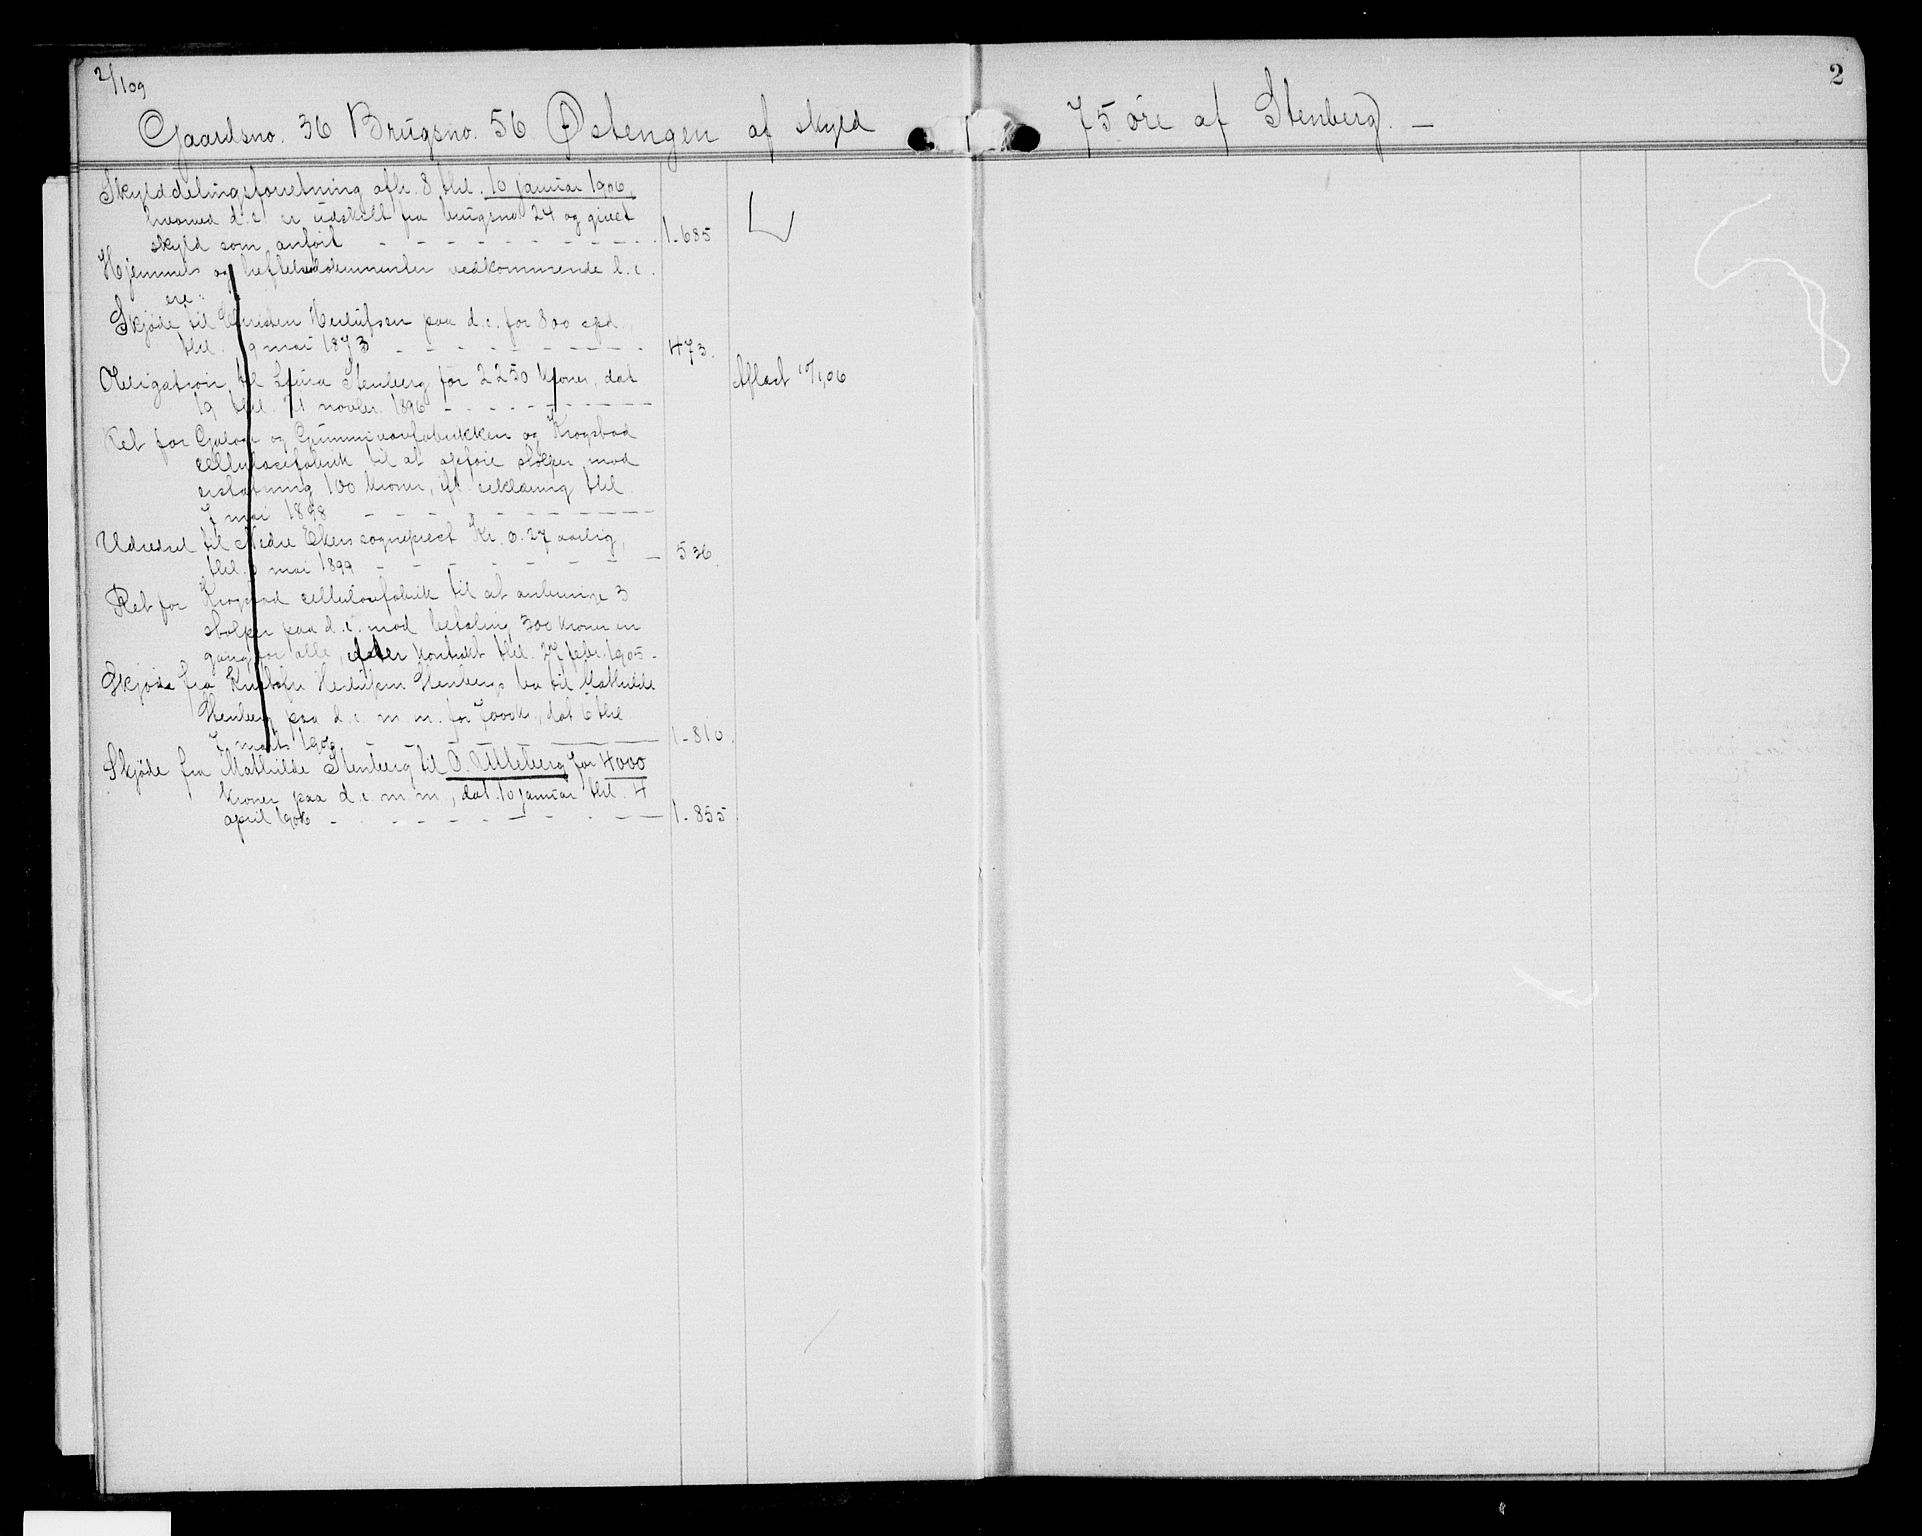 2/109
2
Gaardsno. 36 Brugsno. 56 Østengen af skyld 75 øre af Stenberg. —
Skylddelingsforretning afh. 8 thl. 10 januar 1906,
hvorved d.e. er udskilt fra brugsno 24 og givet
skyld som anført - - - - 1-685
Hjemmels og heftelsesdokumenter vedkommende d.e.
ere:
Skjøde til Christen Herlufsen paa d.e. for 800 spd.,
thl. 9 mai 1873 - - - - 473.
Obligation til Stenberg for 2250 kroner, dat
19 thl. 21 novbr. 1896 - - - - Aflæst 10/1 06
Ret for Galoge og Gummivarefabrikken og Krogstad
cellulosefabrik til at opføre stolper mod
erstatning 100 kroner, ifl. erklæring thl.
7 mai 1898 - - - -
Udredsel til Nedre Ekers sogneprest Kr. 0.27 aarlig,
thl. mai 1899 - - - - 536.
Ret for Krogstad cellulosefabrik til at anbringe 3
stolper paa d.e. mod betaling 300 kroner en
gang for alle, efter kontrakt thl. 27 febr. 1905-
Skjøde fra Herlufsen Stenbergs bo til Mathilde
Stenberg paa d.e. m. m. for 7000 kr., dat 6 thl.
7 marts 1906 - - - - 1-810.
Skjøde fra Mathilde Stenberg til O. Ulleberg for 4000
kroner paa d.e. m m, dat. 10 januar thl. 4
april 1906 - - - - 1-855